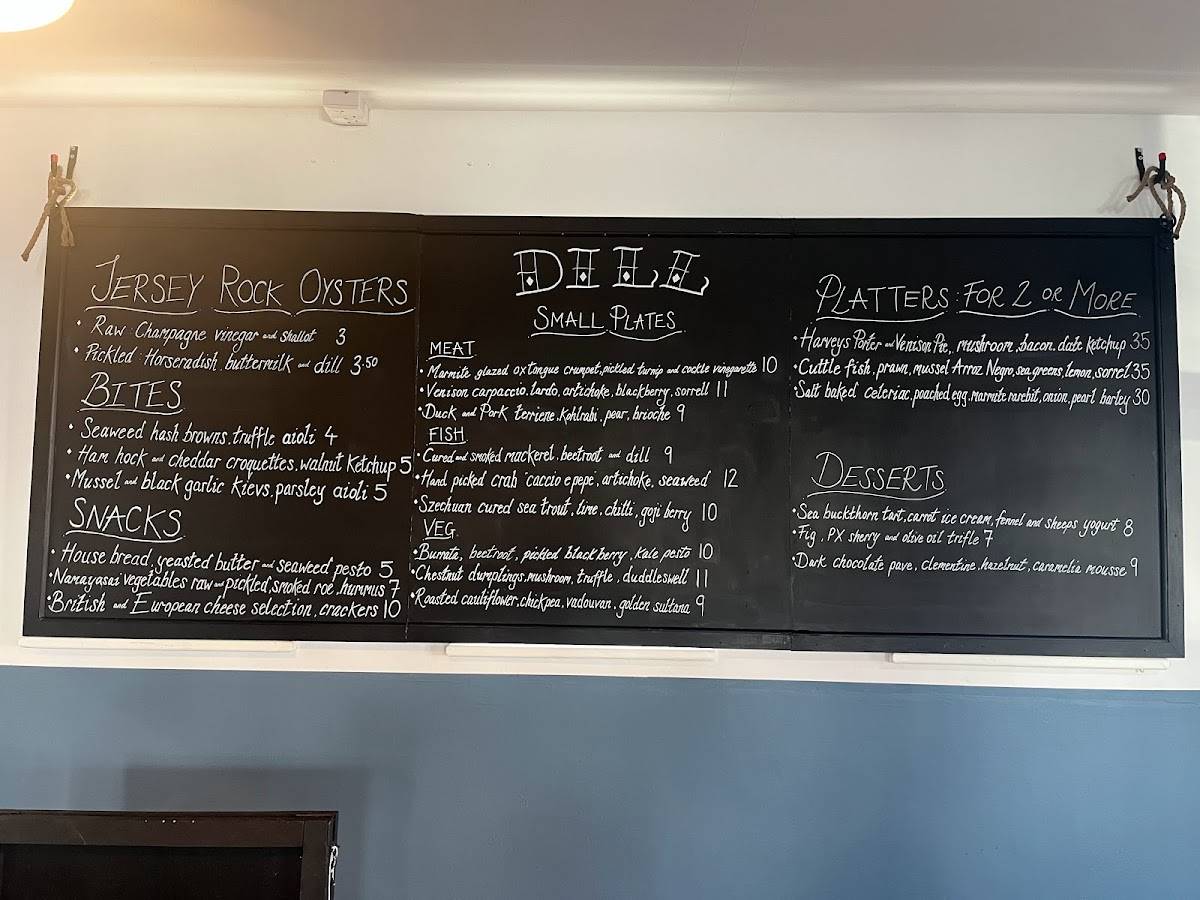 JERSEY ROCK OYSTERS
• Raw: Champagne vinegar and shallot 3
• Pickled: Horseradish, buttermilk and dill 3.50
BITES
• Seaweed hash browns, truffle aioli 4
• Ham hock and cheddar croquettes, walnut ketchup 5
• Mussel and black garlic Kievs, parsley aioli 5
SNACKS
• House bread, yeasted butter and seaweed pesto 5
• Namayasai vegetables raw and pickled, smoked roe, hummus 7
• British and European cheese selection, crackers 10
DILL
SMALL PLATES
MEAT
• Marmite glazed ox tongue crumpet, pickled turnip and cockle vinegarette 10
• Venison carpaccio, lardo, artichoke, blackberry, sorrell 11
• Duck and Pork terriene, Kohlrabi, pear, brioche 9
FISH
• Cured and smoked mackerel, beetroot and dill 9
• Hand picked crab 'caccio e pepe, artichoke, seaweed 12
• Szechuan cured sea trout, lime, chilli, goji berry 10
VEG
• Burrata, beetroot, pickled blackberry, kale pesto 10
• Chestnut dumptings, mushroom, truffle, duddleswell 11
• Roasted cauliflower, chickpea, vadouvan, golden sultana 9
PLATTERS: FOR 2 OR MORE
• Harveys Porter and Venison Pie, mushroom, bacon, date ketchup 35
• Cuttle fish, prawn, mussel Arroz Negro, sea greens, lemon, sorrel 35
• Salt baked celeriac, poached egg, marmite rarebit, onion, pearl barley 30
DESSERTS
• Sea buckthorn tart, carrot ice cream, fennel and sheeps yogurt 8
• Fig, PX sherry and olive oil trifle 7
• Dark chocolate pave, clementine, hazelnut, caramelia mousse 9